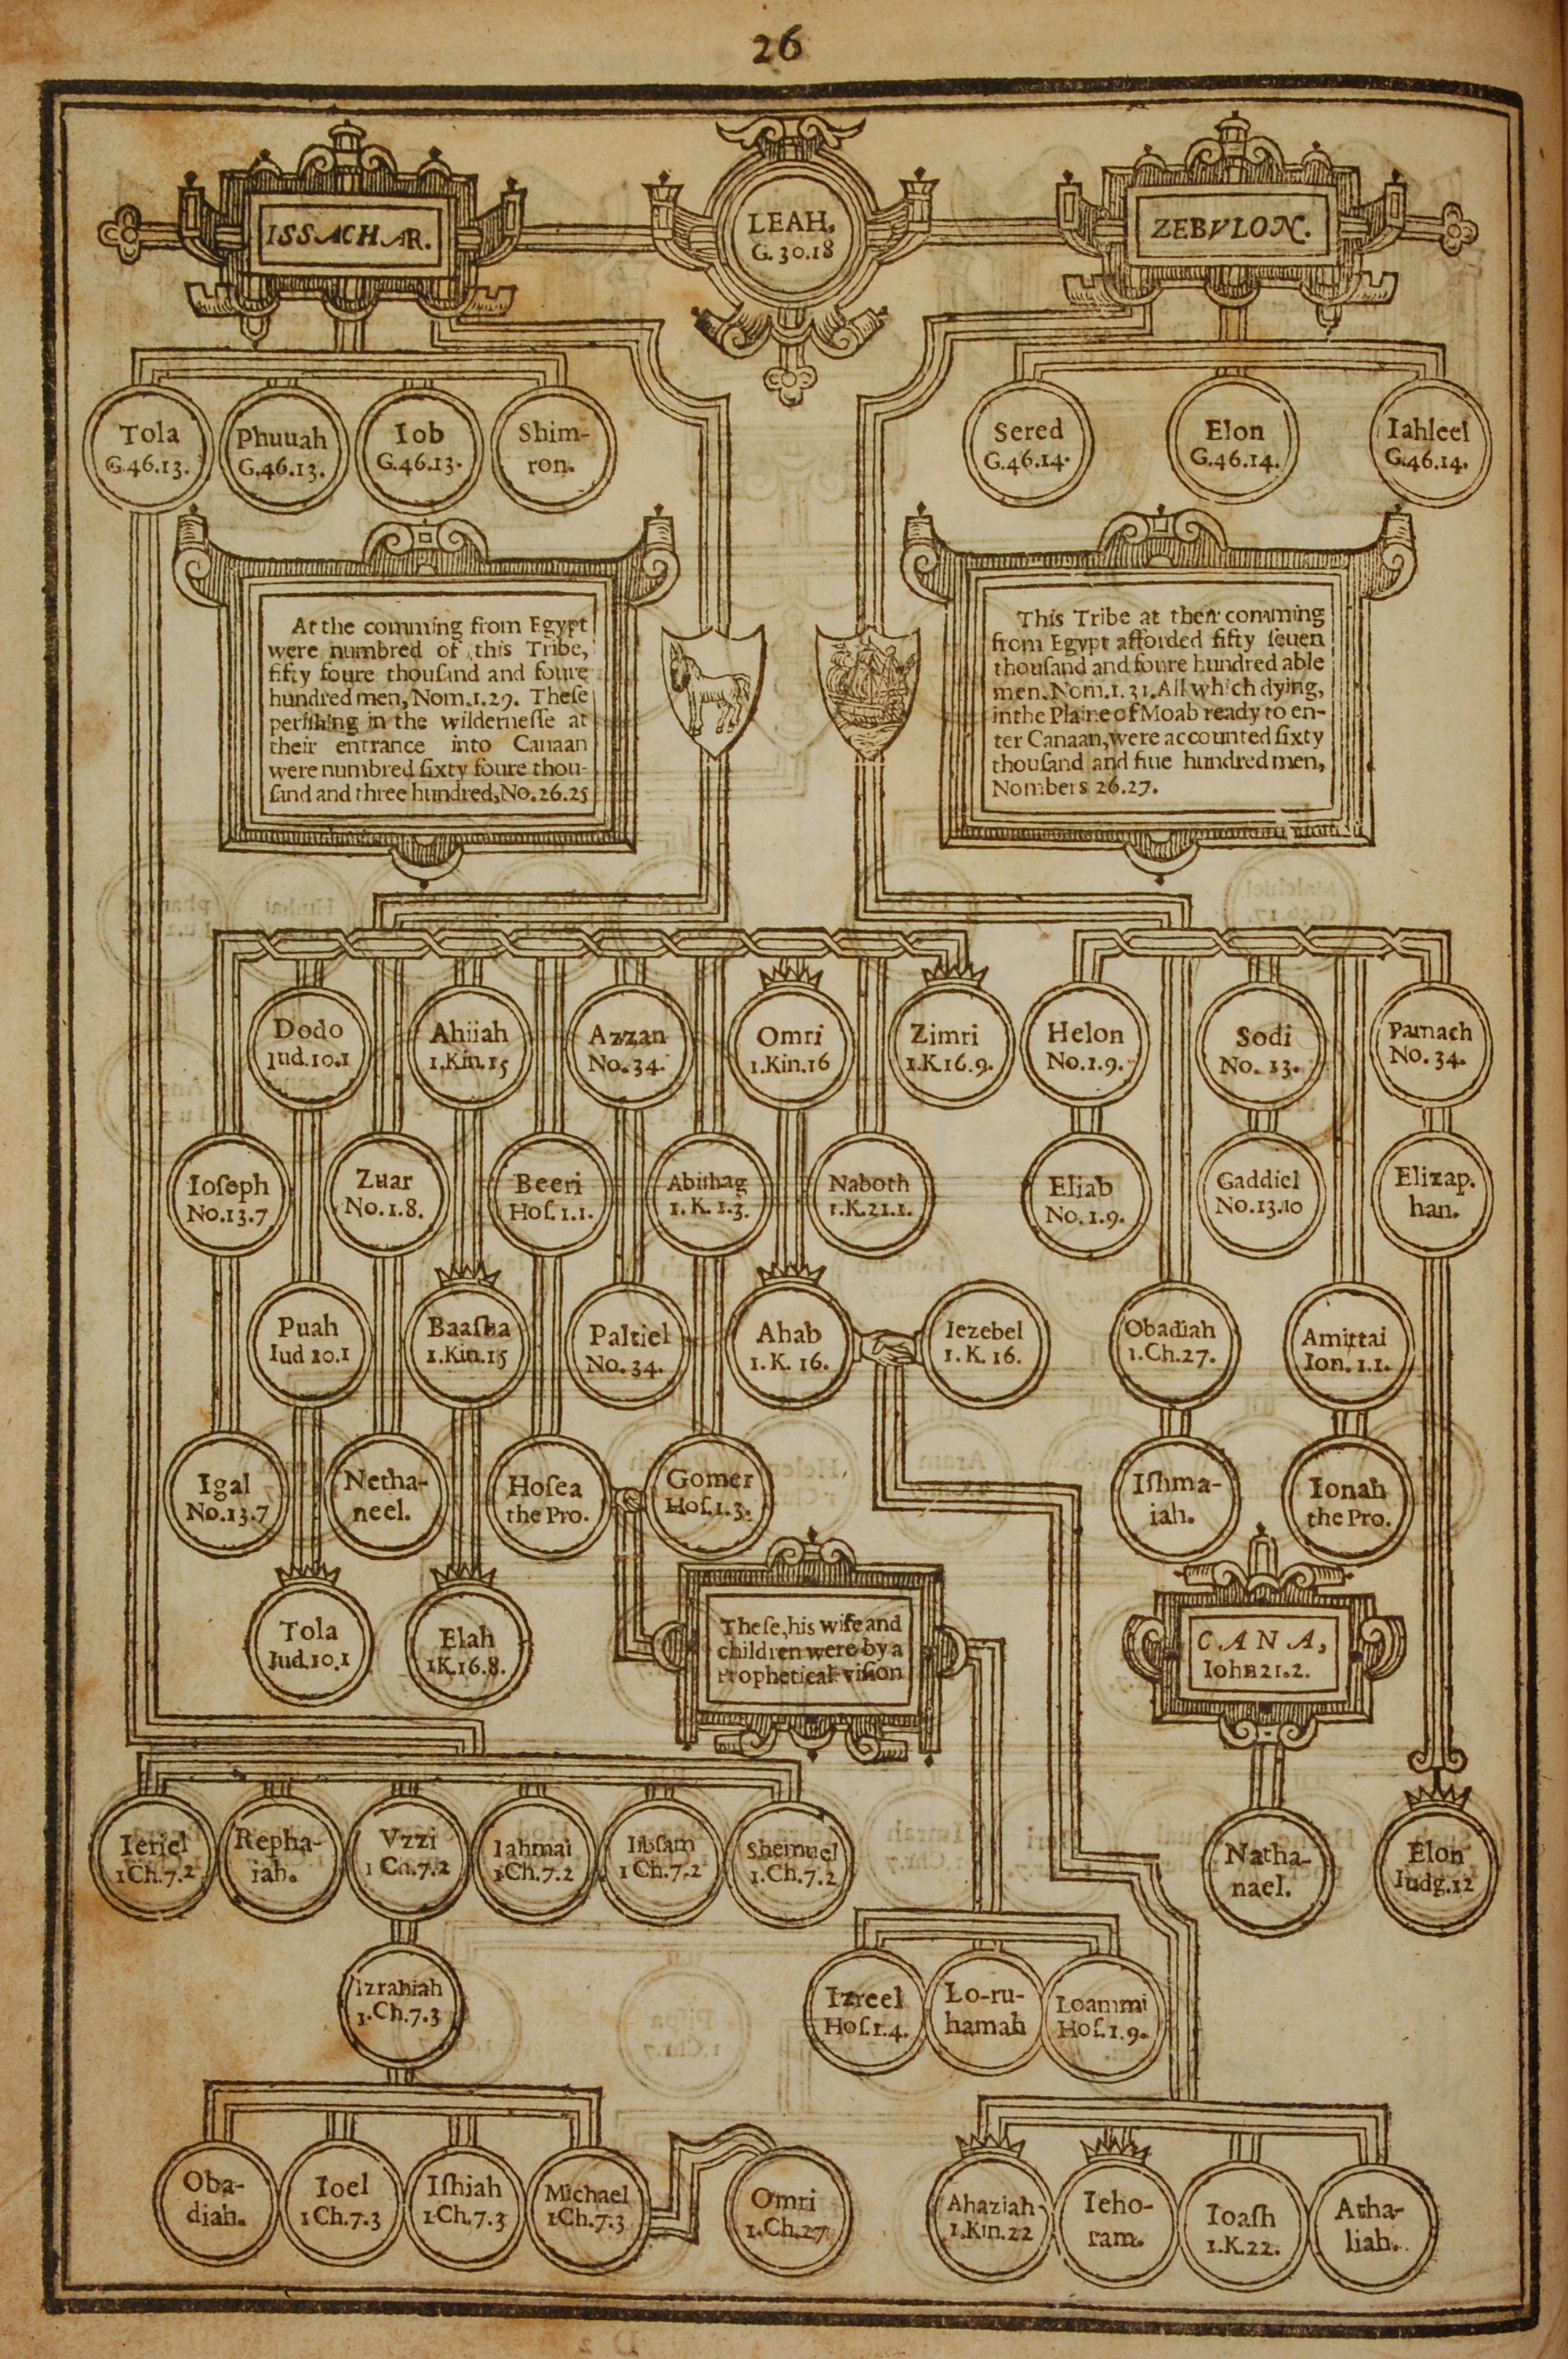 26
ISSACHAR.
LEAH.
G. 30.18
ZEBVLON.
Tola
G.46.13.
Phuuah
G.46.13.
Iob
G.46.13.
Shim-
ron.
Sered
G.46.14.
Elon
G.46.14.
Iahleel
G.46.14.
At the comming from Egypt
were numbred of this Tribe,
fifty foure thouſand and foure
hundred men, Nom.1.29. Theſe
periſhing in the wilderneſſe at
their entrance into Canaan
were numbred ſixty foure thou-
ſand and three hundred, No.26.25
This Tribe at their comming
from Egypt afforded fifty ſeuen
thouſand and foure hundred able
men. Nom.1.31. All which dying,
in the Plaine of Moab ready to en-
ter Canaan, were accounted ſixty
thouſand and fiue hundred men,
Nombers 26.27.
Dodo
Iud.10.1
Ahiiah
1.Kin.15
Azzan
No.34.
Omri
1.Kin.16
Zimri
1.K.16.9.
Helon
No.1.9.
Sodi
No. 13.
Parnach
No. 34.
Ioſeph
No.13.7
Zuar
No.1.8.
Beeri
Hoſ.1.1.
Abiſhag
1. K. 1.3.
Naboth
1.K.21.1.
Eliab
No.1.9.
Gaddiel
No.13.10
Elizap.
han.
Puah
Iud 10.1
Baaſha
1.Kin.15
Paltiel
No. 34.
Ahab
1. K. 16.
Iezebel
1. K. 16.
Obadiah
1.Ch.27.
Amittai
Ion. 1.1.
Igal
No.13.7
Netha-
neel.
Hoſea
the Pro.
Gomer
Hoſ.1.3.
Iſhma-
iah.
Ionah
the Pro.
Tola
Iud.10.1
Elah
1K.16.8.
Theſe, his wife and
children were by a
Prophetical viſion
CANA,
Iohn 21.2.
Ieriel
1Ch.7.2
Repha-
iah.
Vzzi
1 Ch.7.2
Iahmai
1Ch.7.2
Iibſam
1Ch.7.2
Shemuel
1.Ch.7.2
Natha-
nael.
Elon
Iudg.12
Izrahiah
1.Ch.7.3
Izreel
Hoſ.1.4.
Lo-ru-
hamah
Loammi
Hoſ.1.9.
Oba-
diah.
Ioel
1Ch.7.3
Iſhiah
1.Ch.7.3
Michael
1Ch.7.3
Omri
1.Ch.27
Ahaziah
1.Kin.22
Ieho-
ram.
Ioaſh
1.K.22.
Atha-
liah.